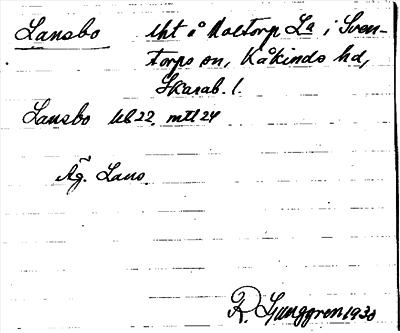 Lansbo lht å Moltorp La i Sven-
torps sn, Kåkinds hd,
Skarab. l.
Lansbo bl 22, mtl 24
Äg. Lans.
R. Ljunggren 1930